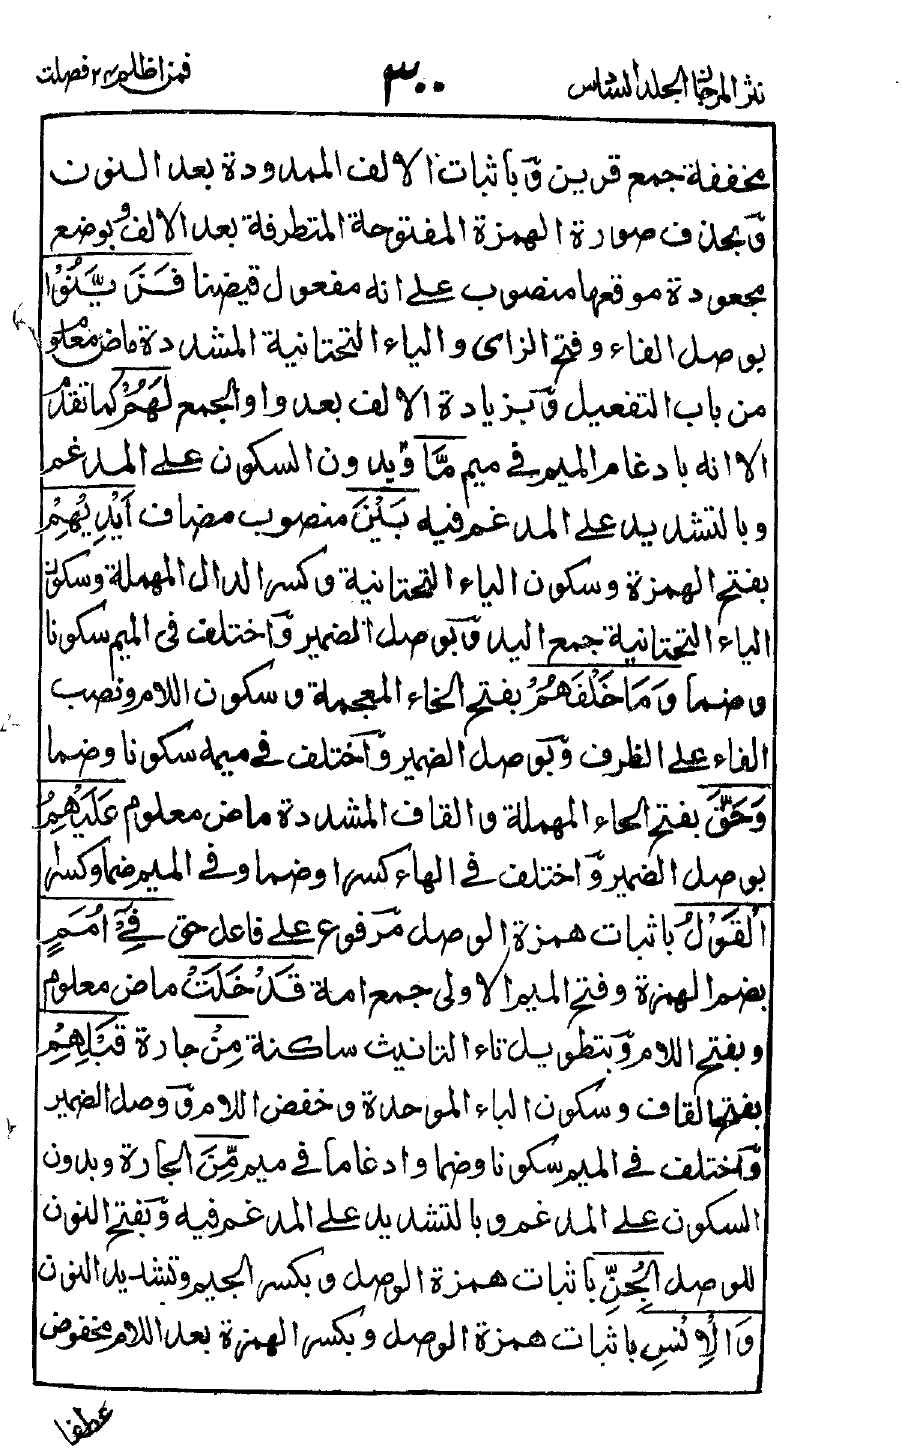 نثر المرجان الجلد السادس ٣٠٠ فمن اظلم ٢٤ فصلت
مخففة جمع قرين وَباثبات الالف الممدودة بعد النون
وَبحذف صورة الهمزة المفتوحة المتطرفة بعد الالف وبوضع
مجعودة موقعها منصوب على انه مفعول قيضنا فَزَيَّنُوْا
بوصل الفاء وفتح الزاى والياء التحتانية المشددة ماض معلوم
من باب التفعيل وَبزيادة الالف بعد واو الجمع لَهُمْ كما تقدم
الا انه بادغام الميم في ميم مَّا وَبدون السكون على المدغم
وبالتشديد على المدغم فيه بَيْنَ منصوب مضاف اَيْدِيْهِمْ
بفتح الهمزة وسكون الياء التحتانية وكسر الدال المهملة وسكون
الياء التحتانية جمع اليد وَبوصل الضمير وَاختلف فى الميم سكونا
وضما وَمَا خَلْفَهُمْ بفتح الخاء المعجمة وسكون اللام ونصب
الفاء على الظرف وَبوصل الضمير وَاختلف في ميمه سكونا وضما
وَحَقَّ بفتح الحاء المهملة والقاف المشددة ماض معلوم عَلَيْهِمُ
بوصل الضمير وَاختلف في الهاء كسرا وضما وفي الميم ضما وكسرا
الْقَوْلُ باثبات همزة الوصل مرفوع على فاعل حق فِيْٓ اُمَمٍ
بضم الهمزة وفتح الميم الاولى جمع امة قَدْ خَلَتْ ماض معلوم
وبفتح اللام وَبتطويل تاء التانيث ساكنة مِنْ جارة قَبْلِهِمْ
بفتح القاف وسكون الباء الموحدة وخفض اللام وَوصل الضمير
وَاختلف في الميم سكونا وضما وادغاما في ميم مِّنَ الجارة وبدون
السكون على المدغم وبالتشديد على المدغم فيه وَبفتح النون
للوصل الْجِنِّ باثبات همزة الوصل وبكسر الجيم وتشديد النون
وَالْاِنْسِ باثبات همزة الوصل وبكسر الهمزة بعد اللام مخفوض
عطفا